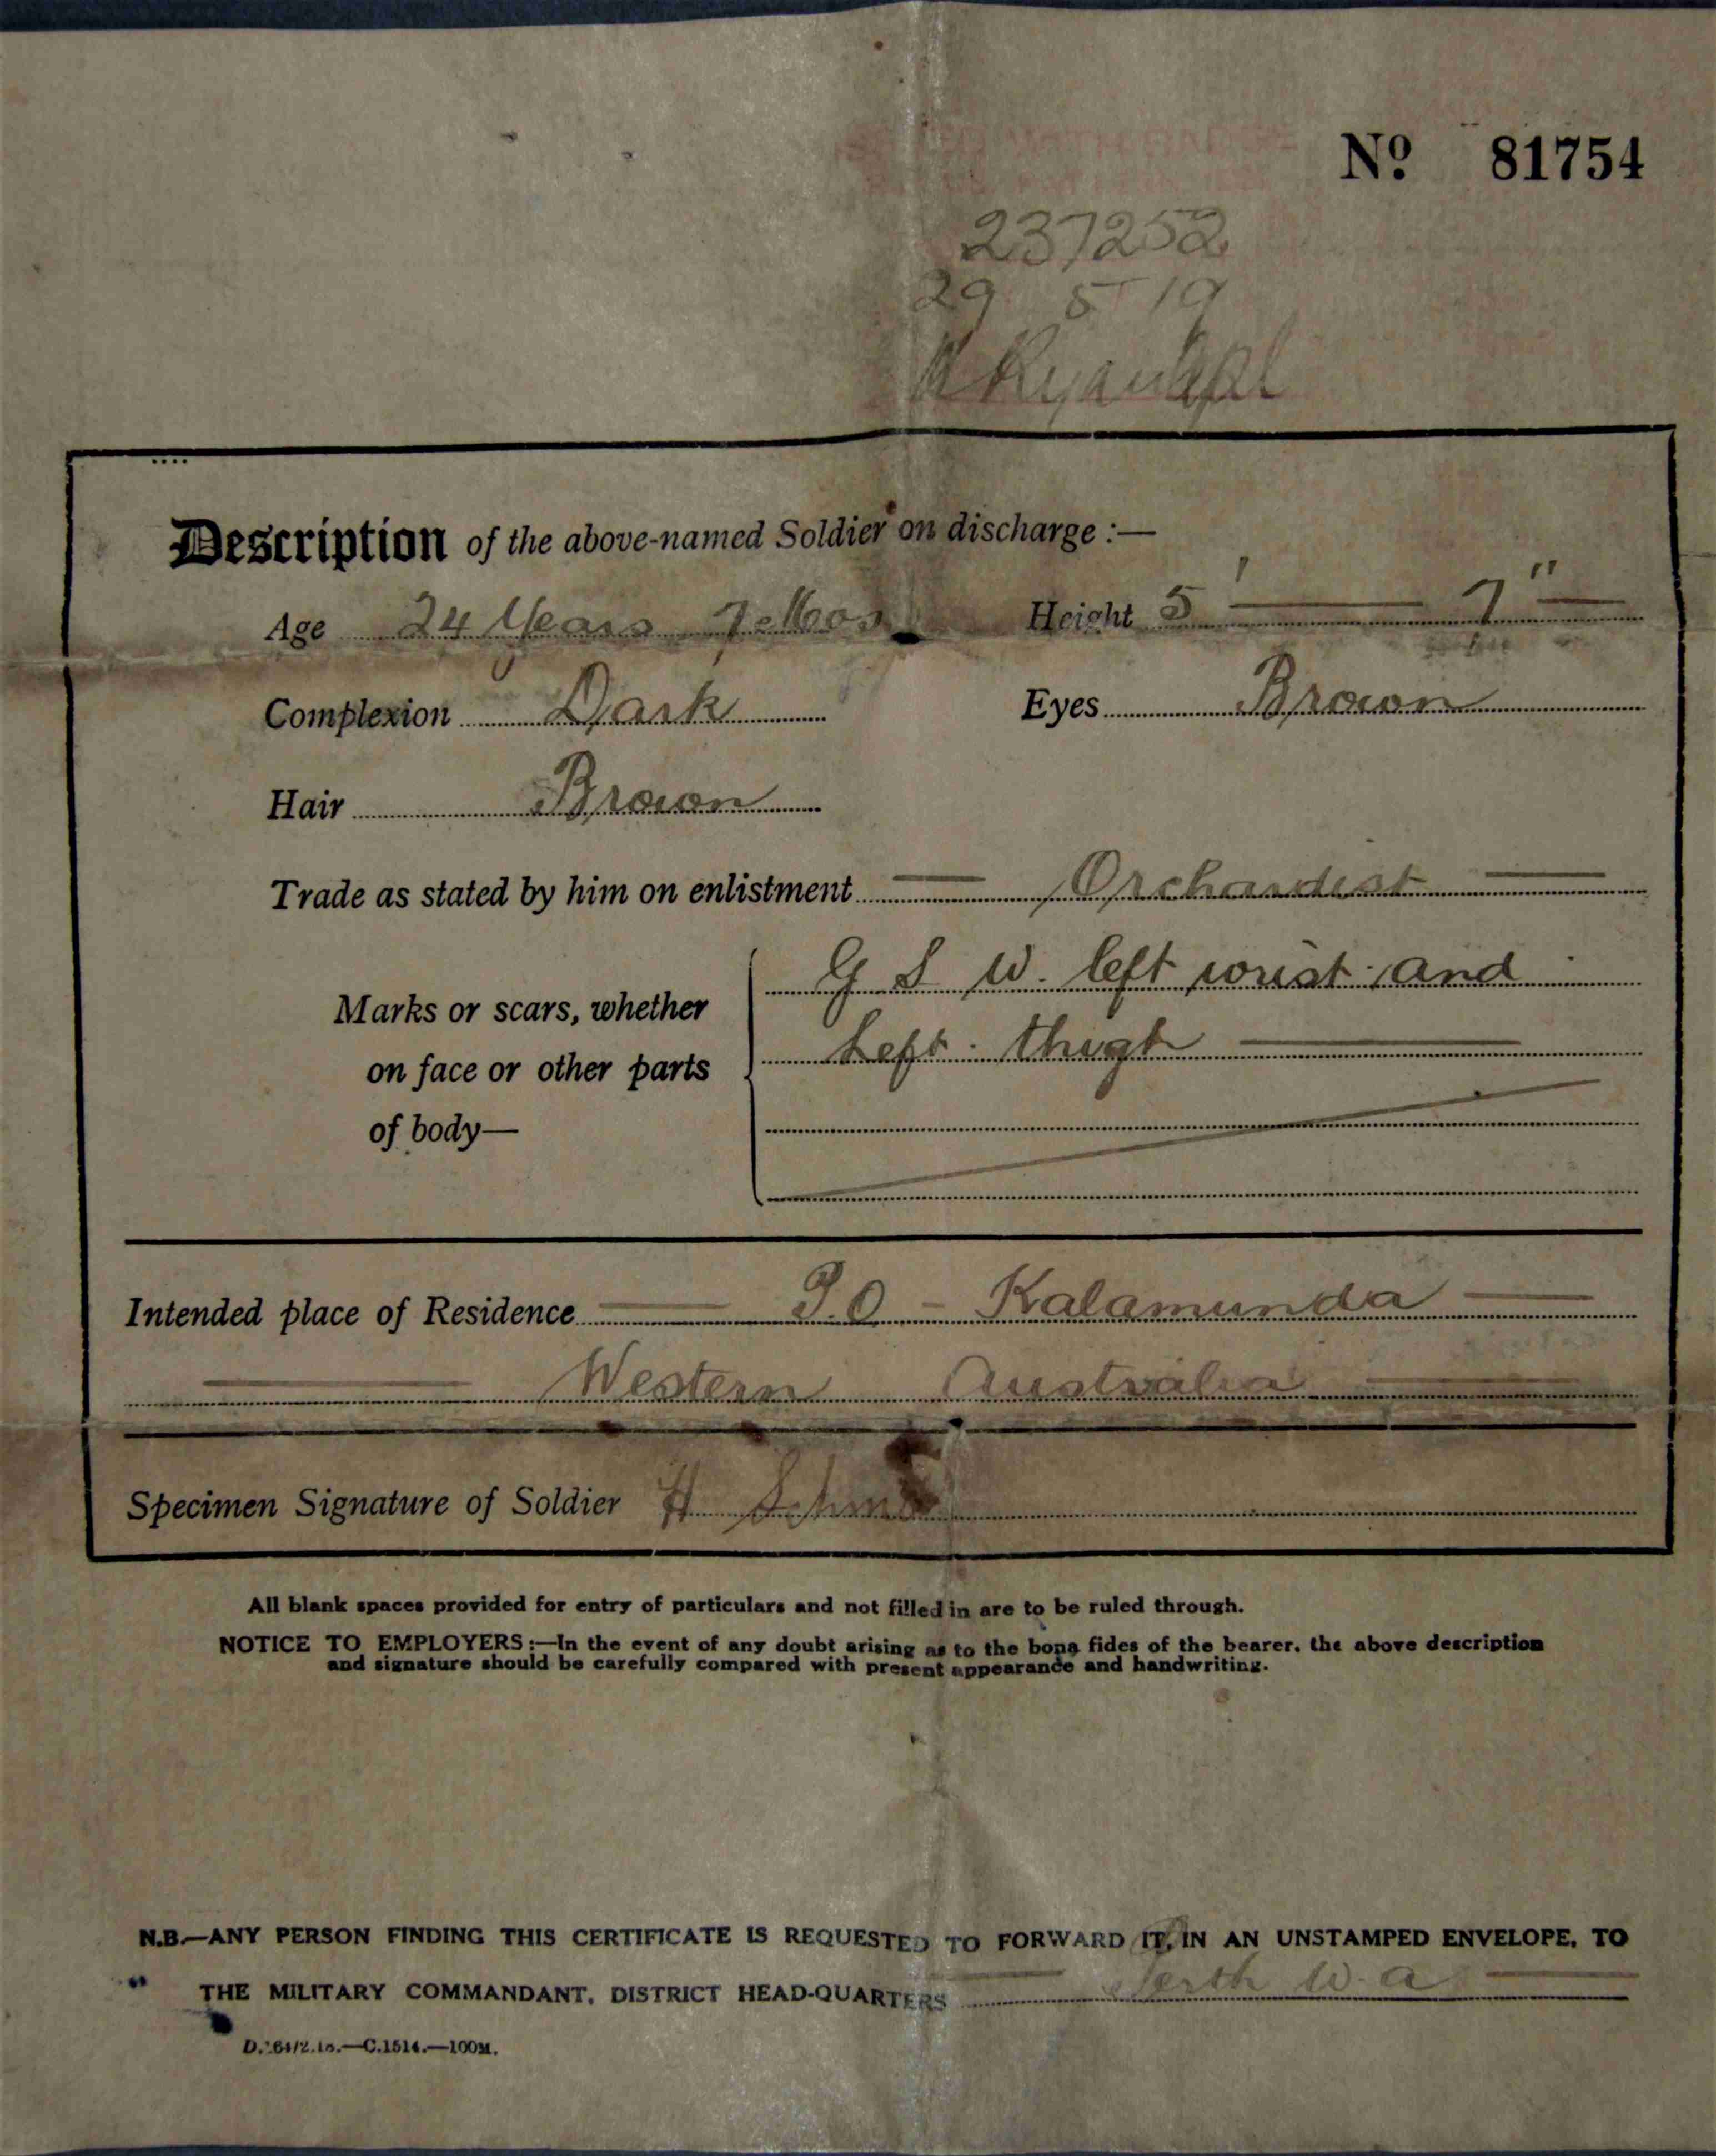 No. 81754
237252
29 5 19
Description of the above-named Soldier on discharge :—
Age 24 Years 7 Mos Height 5' 7"
Complexion Dark Eyes Brown
Hair Brown
Trade as stated by him on enlistment Orchardist
Marks or scars, whether on face or other parts of body—
G S W. left wrist and
Left thigh
Intended place of Residence P.O - Kalamunda
Western Australia
Specimen Signature of Soldier H
All blank spaces provided for entry of particulars and not filled in are to be ruled through.
NOTICE TO EMPLOYERS:—In the event of any doubt arising as to the bona fides of the bearer, the above description
and signature should be carefully compared with present appearance and handwriting.
N.B.—ANY PERSON FINDING THIS CERTIFICATE IS REQUESTED TO FORWARD IT, IN AN UNSTAMPED ENVELOPE, TO
THE MILITARY COMMANDANT, DISTRICT HEAD-QUARTERS Perth W. A
C.1514.—100M.